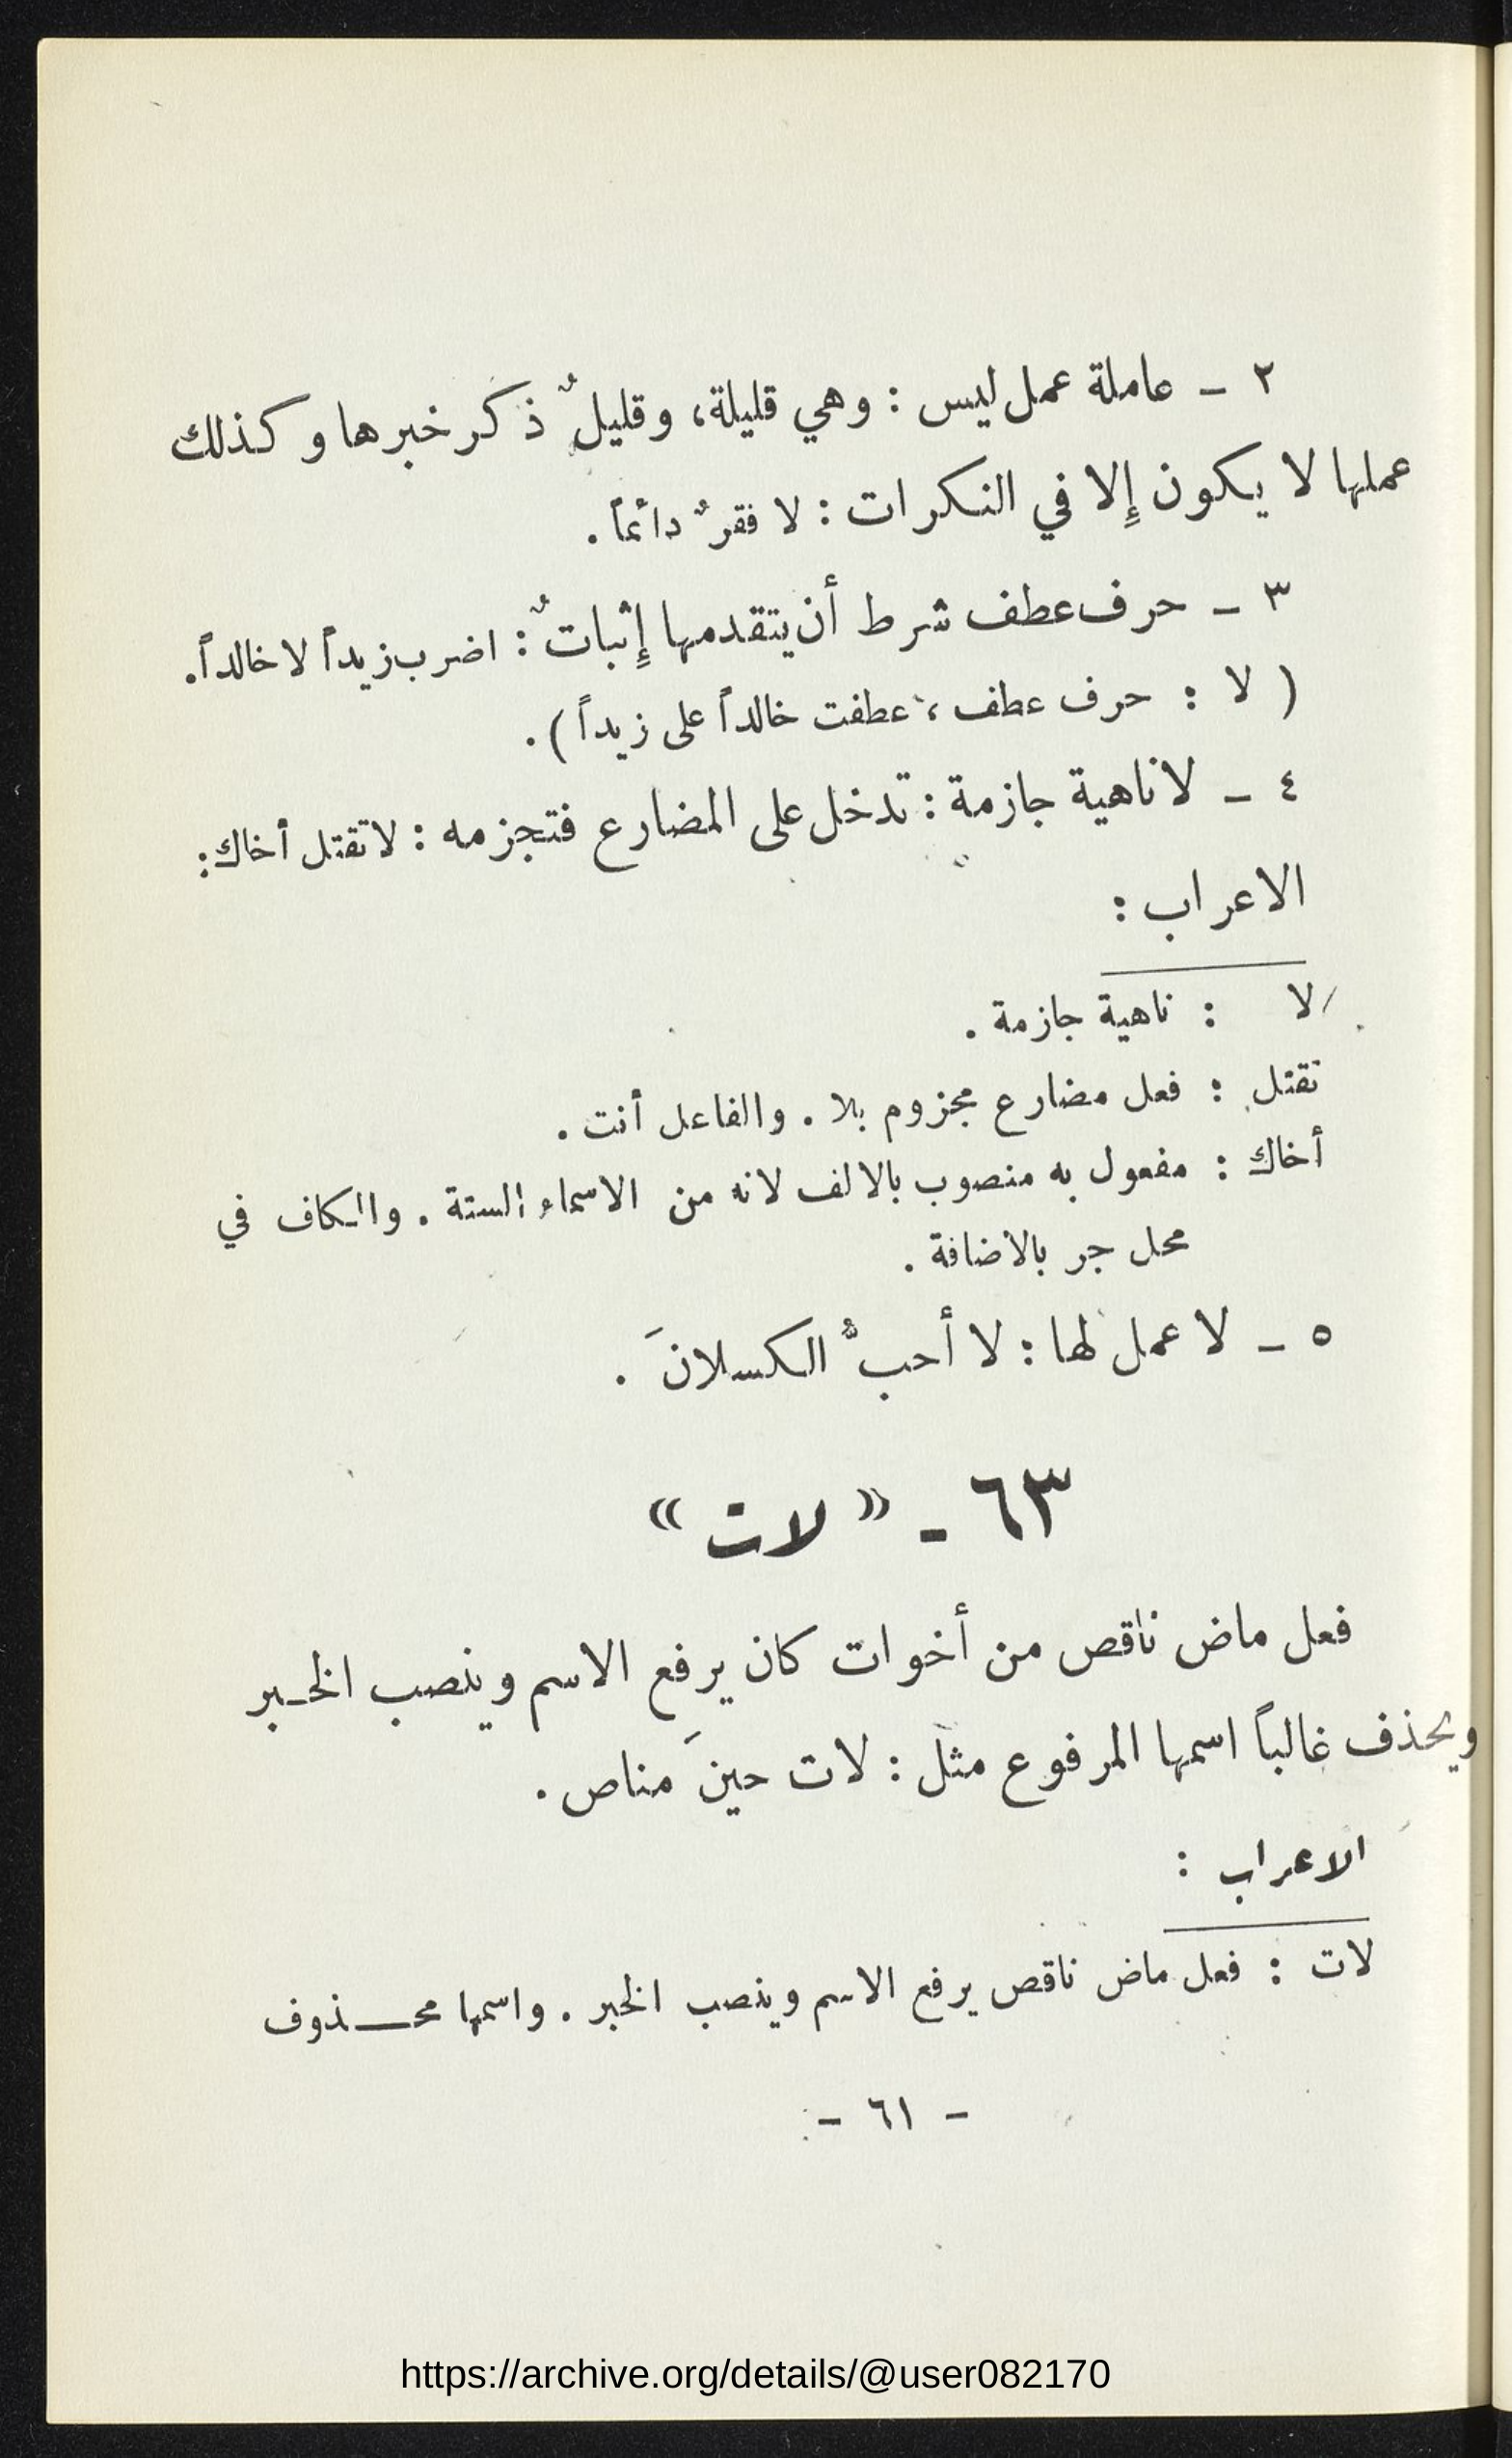 ٢ ــ عاملة عمل ليس : وهي قليلة، وقليلٌ ذكر خبرها وكذلك
عملها لا يكون إِلا في النكرات : لا فقرٌ دائماً .
٣ ــ حرف عطف شرط أن يتقدمها إِثباتٌ : اضرب زيداً لا خالداً.
( لا : حرف عطف ، عطفت خالداً على زيداً ) .
٤ ــ لا ناهية جازمة : تدخل على المضارع فتجزمه : لا تقتل أخاك :
الاعراب :
لا : ناهية جازمة .
تقتل : فعل مضارع مجزوم بلا . والفاعل أنت .
أخاك : مفعول به منصوب بالالف لانه من الاسماء الستة . والكاف في
محل جر بالاضافة .
٥ ــ لا عمل لها : لا أحبُّ الكسلانَ .
٦٣ - « لات »
فعل ماض ناقص من أخوات كان يرفع الاسم وينصب الخـبر
ويحذف غالباً اسمها المرفوع مثل : لات حينَ مناص .
الاعراب :
لات : فعل ماض ناقص يرفع الاسم وينصب الخبر . واسمها محـــذوف
- ٦١ -
https://archive.org/details/@user082170